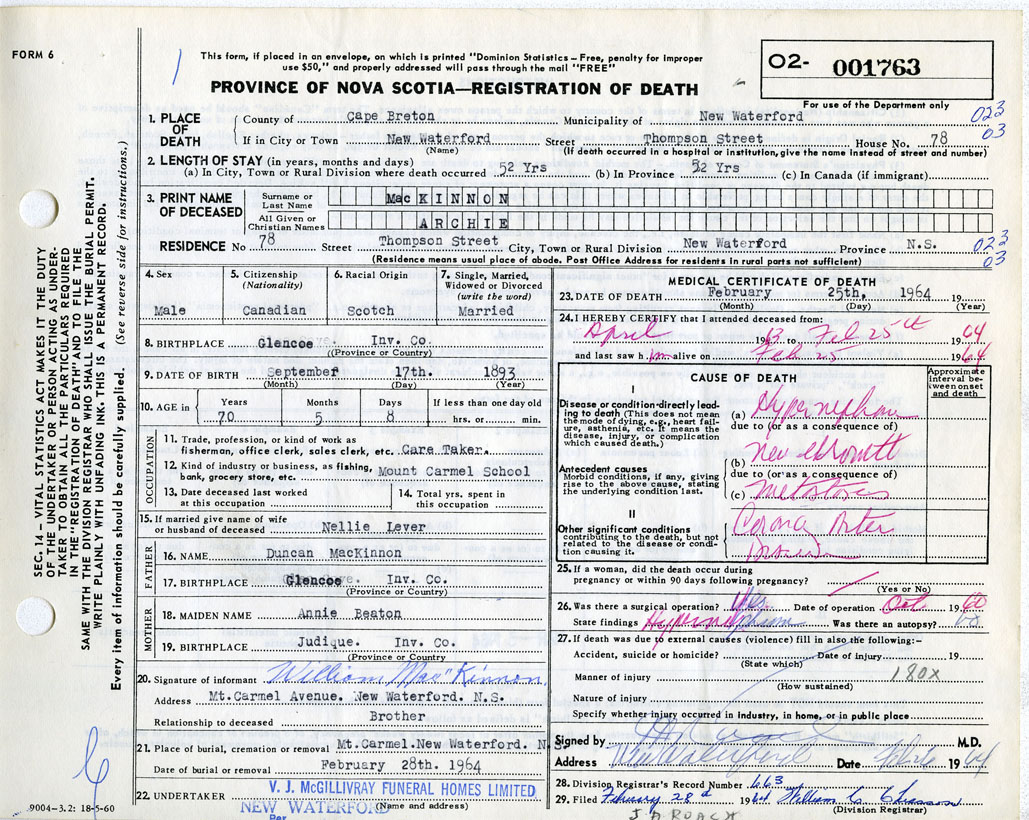 FORM 6
This form, if placed in an envelope, on which is printed "Dominion Statistics – Free, penalty for improper
use $50," and properly addressed will pass through the mail "FREE"
PROVINCE OF NOVA SCOTIA—REGISTRATION OF DEATH
O2- 001763
For use of the Department only
SEC. 14 – VITAL STATISTICS ACT MAKES IT THE DUTY
OF THE UNDERTAKER OR PERSON ACTING AS UNDER-
TAKER TO OBTAIN ALL THE PARTICULARS REQUIRED
IN THE "REGISTRATION OF DEATH" AND TO FILE THE
SAME WITH THE DIVISION REGISTRAR WHO SHALL ISSUE THE BURIAL PERMIT.
WRITE PLAINLY WITH UNFADING INK. THIS IS A PERMANENT RECORD.
Every item of information should be carefully supplied. (See reverse side for instructions.)
1. PLACE OF DEATH
County of Cape Breton Municipality of New Waterford 023
If in City or Town New Waterford Street Thompson Street House No. 78 03
(Name) (If death occurred in a hospital or institution, give the name instead of street and number)
2. LENGTH OF STAY (in years, months and days)
(a) In City, Town or Rural Division where death occurred 52 Yrs (b) In Province 52 Yrs (c) In Canada (if immigrant)
3. PRINT NAME OF DECEASED
Surname or Last Name MacKINNON
All Given or Christian Names ARCHIE
RESIDENCE No 78 Street Thompson Street City, Town or Rural Division New Waterford Province N.S. 023
03
(Residence means usual place of abode. Post Office Address for residents in rural parts not sufficient)
4. Sex
Male
5. Citizenship
(Nationality)
Canadian
6. Racial Origin
Scotch
7. Single, Married,
Widowed or Divorced
(write the word)
Married
8. BIRTHPLACE Glencoe Inv. Co.
(Province or Country)
9. DATE OF BIRTH September 17th. 1893
(Month) (Day) (Year)
10. AGE in
Years Months Days If less than one day old
70 5 8 hrs. or min.
OCCUPATION
11. Trade, profession, or kind of work as
fisherman, office clerk, sales clerk, etc. Care Taker.
12. Kind of industry or business, as fishing,
bank, grocery store, etc. Mount Carmel School
13. Date deceased last worked
at this occupation
14. Total yrs. spent in
this occupation
15. If married give name of wife
or husband of deceased Nellie Lever
FATHER
16. NAME Duncan MacKinnon
17. BIRTHPLACE Glencoe Inv. Co.
(Province or Country)
MOTHER
18. MAIDEN NAME Annie Beaton
19. BIRTHPLACE Judique. Inv. Co.
(Province or Country)
20. Signature of informant William MacKinnon
Address Mt.Carmel Avenue. New Waterford. N.S.
Relationship to deceased Brother
21. Place of burial, cremation or removal Mt.Carmel.New Waterford. N.S.
Date of burial or removal February 28th. 1964
22. UNDERTAKER V. J. McGILLIVRAY FUNERAL HOMES LIMITED
NEW WATERFORD (Name and address)
Per
9004–3.2: 18-5-60
MEDICAL CERTIFICATE OF DEATH
23. DATE OF DEATH February 25th, 1964 19
(Month) (Day) (Year)
24. I HEREBY CERTIFY that I attended deceased from:
April 1963 to Feb 25th 1964
and last saw him alive on Feb 25 1964
CAUSE OF DEATH
Approximate
interval be-
tween onset
and death
I
Disease or condition directly lead-
ing to death (This does not mean
the mode of dying, e.g., heart fail-
ure, asthenia, etc. It means the
disease, injury, or complication
which caused death.)
(a)
due to (or as a consequence of)
(b) New Growth
Antecedent causes
Morbid conditions, if any, giving
rise to the above cause, stating
the underlying condition last.
due to (or as a consequence of)
(c)
II
Other significant conditions
contributing to the death, but not
related to the disease or condi-
tion causing it.
25. If a woman, did the death occur during
pregnancy or within 90 days following pregnancy?
(Yes or No)
26. Was there a surgical operation? Yes Date of operation Oct 1960
State findings Was there an autopsy? no
27. If death was due to external causes (violence) fill in also the following:–
Accident, suicide or homicide? Date of injury 19
(State which)
Manner of injury 180X
(How sustained)
Nature of injury
Specify whether injury occurred in industry, in home, or in public place
Signed by M.D.
Address New Waterford Date 1964
28. Division Registrar's Record Number 663
29. Filed February 28th 1964 William C
(Division Registrar)
J A ROACH